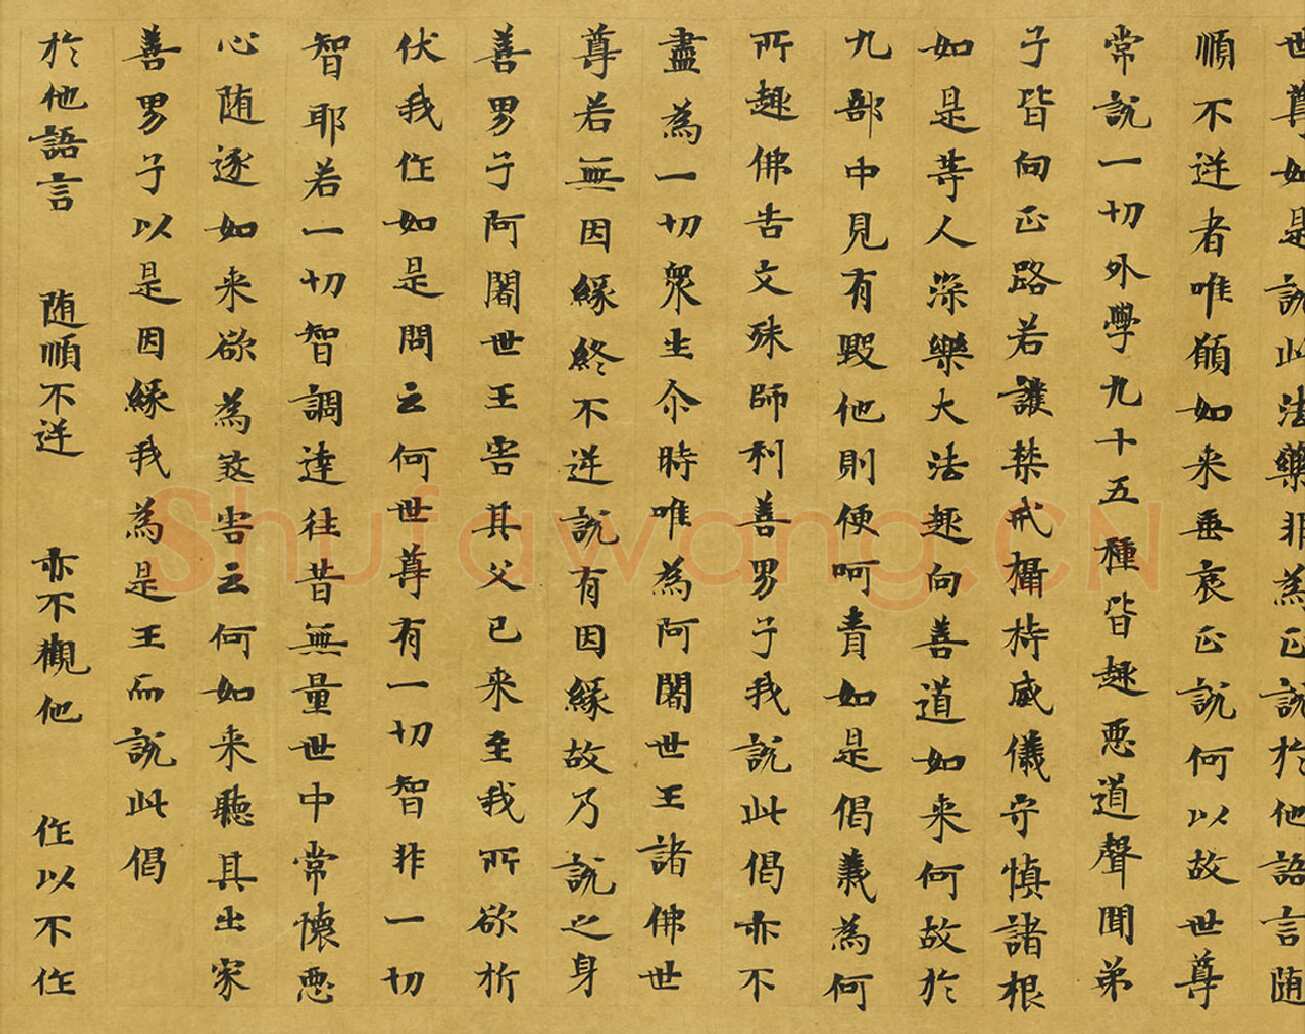 世尊如是說此法藥非為正說於他語言随
順不逆者唯願如来垂哀正說何以故世尊
常說一切外學九十五種皆趣悪道聲聞弟
子皆向正路若護禁戒攝持威儀守慎諸根
如是等人深樂大法趣向善道如来何故於
九部中見有毀他則便呵責如是偈義為何
所趣佛告文殊師利善男子我說此偈亦不
盡為一切衆生尒時唯為阿闍世王諸佛世
尊若無因緣終不逆說有因緣故乃說之身
善男子阿闍世王害其父已来至我所欲折
伏我作如是問云何世尊有一切智非一切
智耶若一切智調達往昔無量世中常懷悪
心随逐如来欲為煞害云何如来聽其出家
善男子以是因緣我為是王而說此偈
於他語言 随順不逆 亦不觀他 作以不作
Shufawang.CN